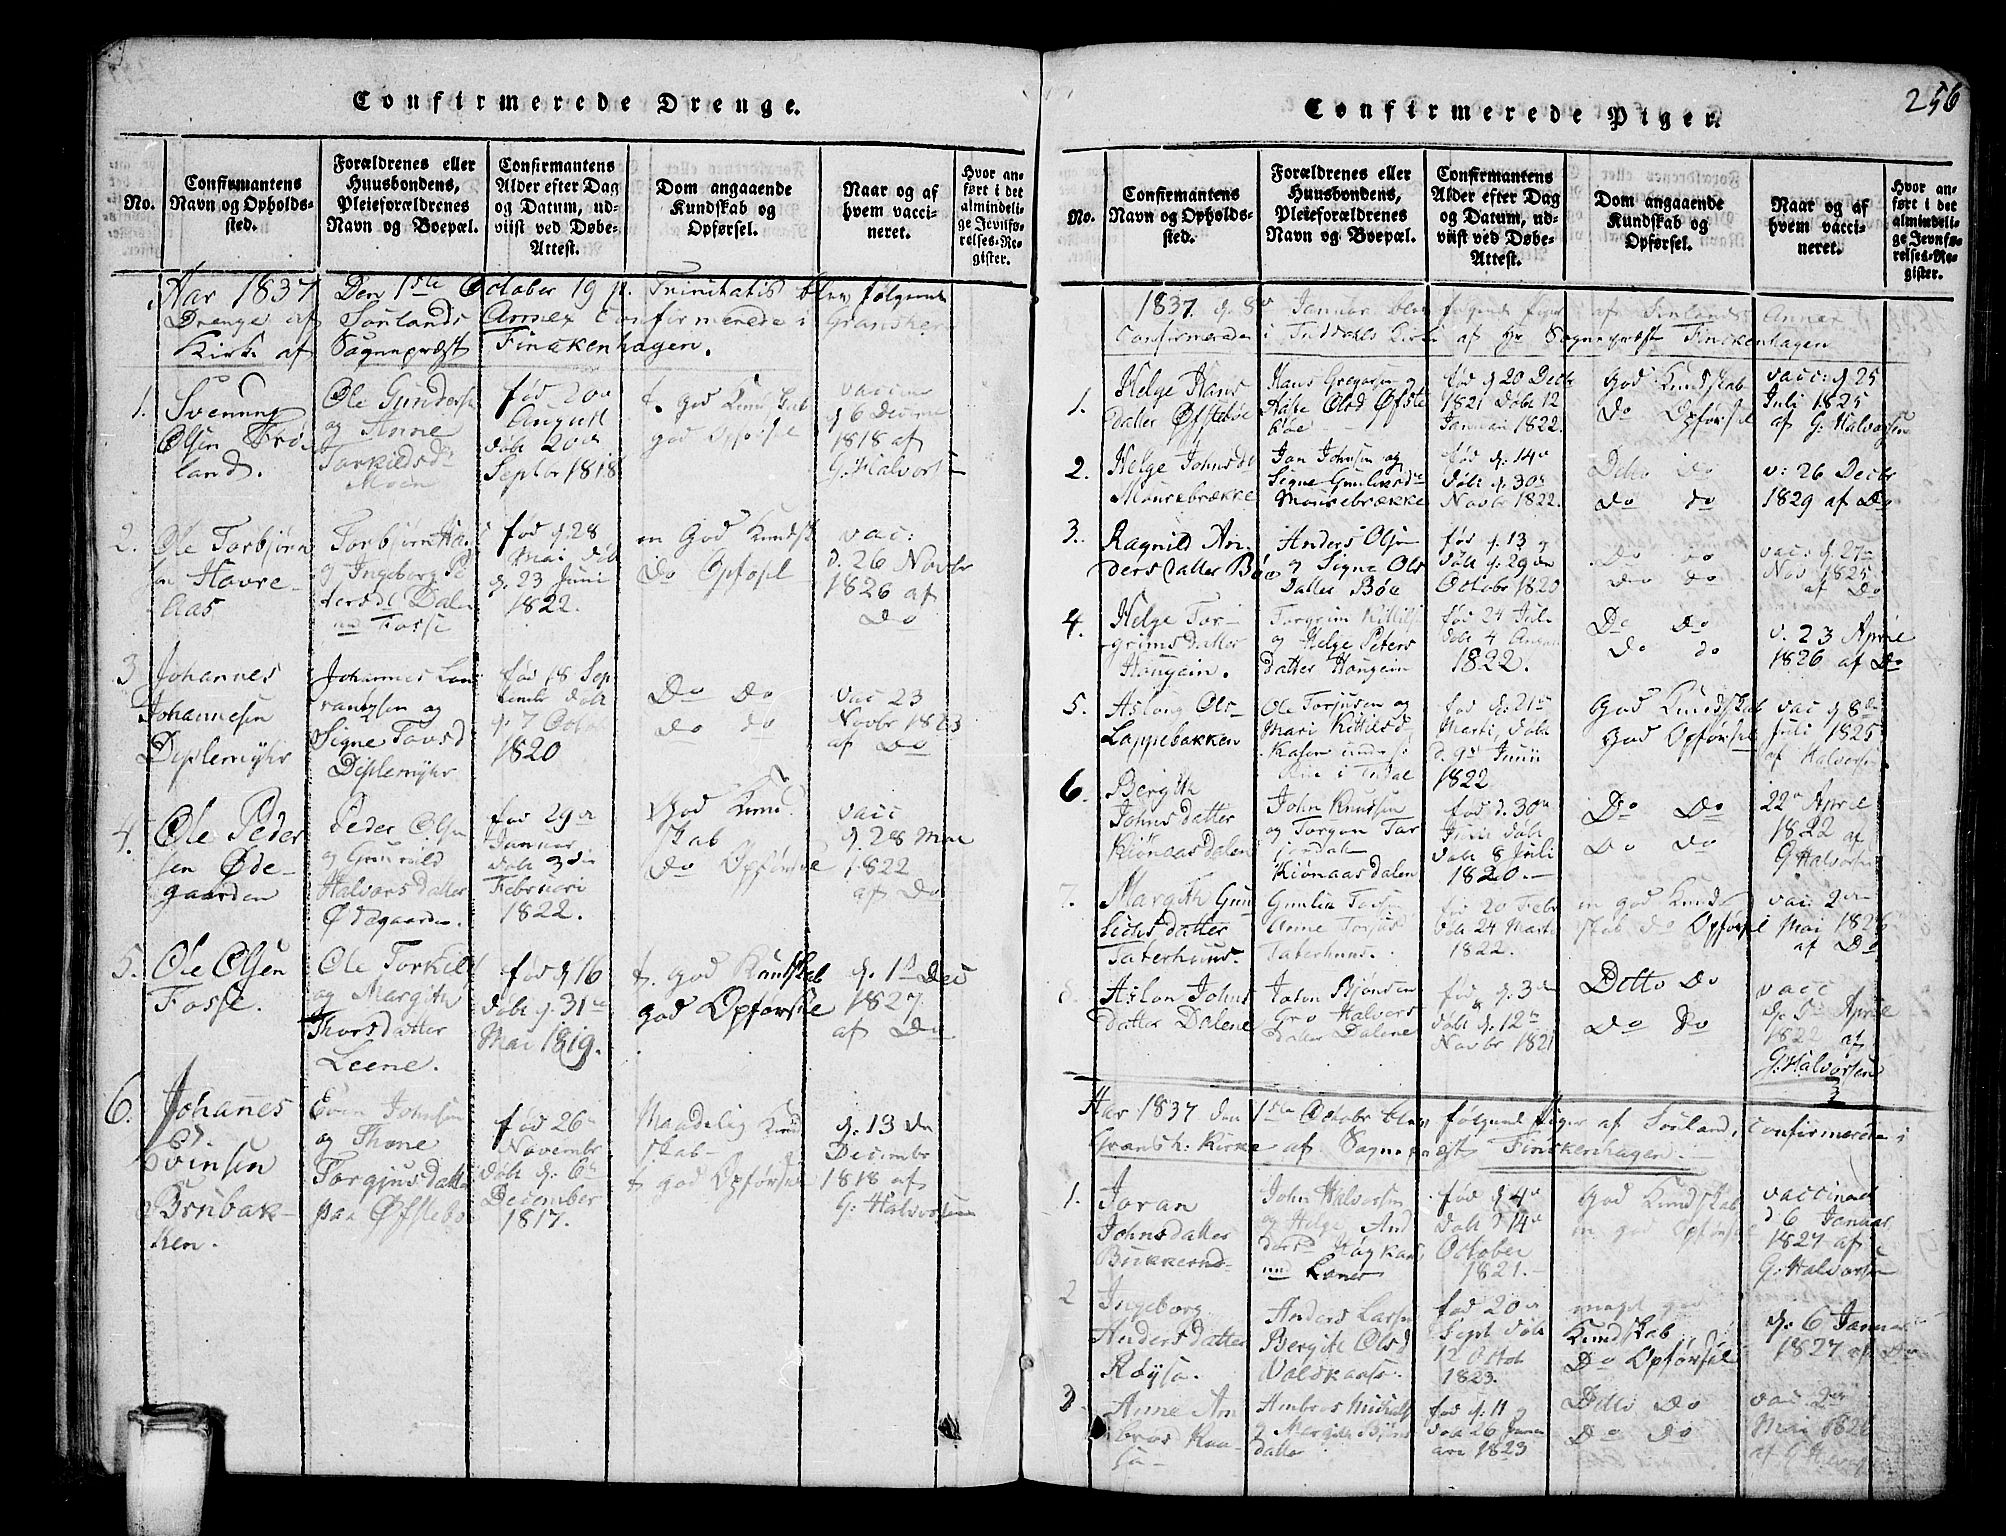 256
Confirmerede Drenge.
No.
Confirmantens
Navn og Opholds-
sted.
Forældrenes eller
Huusbondens,
Pleieforældrenes
Navn og Boepæl.
Confirmantens
Alder efter Dag
og Datum, ud-
viist ved Døbe-
Attest.
Dom angaaende
Kundskab og
Opførsel.
Naar og af
hvem vacci-
neret.
Hvor an-
ført i det
almindeli-
ge Jevnfø-
relses-Re-
gister.
Aar 1837 Den 1ste October 19 p. Trinitatis blev følgende
Drenge af Sørlands Annex Confirmerede i Gransher
Kirke af Sognepræst Finckenhagen.
1.
Svenung
Olsen Frø-
land.
Ole Gunders
og Anne
Torkildsd
Moen
fød 20de
August
døbt 20de
Septbr 1818
t. god Kundskab
god Opførsel
vaccine
d. 6 Decme
1818 af
G. Halvors
2.
Ole Torbjørn
sen Havre-
aas
Torbjørn
og Ingeborg Pe
tersd Dalen
und Fosse
fød d. 28
Mai døb
d. 23 Juni
1822.
m God Kundsk
Do Opføsel
vac:
d. 26 Novbr
1826 af
Do
3
Johannes
Johannesen
Diplemyhr
Johannes Lau
rantzen og
Signe Tovsd
Diplemyhr
fød 18 Sep
tembr døbt
d. 7 Octo
1820
Do Do
do do
vac 23
Novbr 1823
af Do
4.
Ole Peder
sen Øde-
gaarden
Peder Olsen
og Gunvild
Halvorsdatter
Ødegaarden.
fød 29de
Januar
døbt 3die
Februari
1822.
God Kund
skab
Do Opførsel
vacc
d. 28 Mai
1822
af Do
5.
Ole Olsen
Fosse.
Ole Torkild
og Margith
Thorsdatter
Leene.
fød d. 16
døbt d. 31te
Mai 1819.
t. god Kundskab
god Opførsel
d. 1st Dec
1827.
af Do
6.
Johannes
Evensen
Brubak-
ken.
Even Johnsen
og Thone
Torgjusdatter
paa Øfstebø
fød 26de
Novembr
døbt d. 6te
December
1817.
Maadelig Kund
skab-
t god Opførsel
d. 13 de
Decembr
1818 af
G: Halvorsen
Confirmerede Piger.
No.
Confirmantens
Navn og Opholds-
sted.
Forældrenes eller
Huusbondens,
Pleieforældrenes
Navn og Boepæl.
Confirmantens
Alder efter Dag
og Datum, ud-
viist ved Døbe-
Attest.
Dom angaaende
Kundskab og
Opførsel.
Naar og af
hvem vacci-
neret.
Hvor an-
ført i det
almindeli-
ge Jevnfø-
relses-Re-
gister.
1837. d. 8de Januar blev følgende Piger af Sørlands Annex
Confirmerede i Treddals Kirke af Hr Sognepræst Finckenhagen
1.
Helge Hans
datter Øfstebøe
Hans Gregorsen
Olsd Øfste
bøe
fød d. 20 Decbr
1821 døbt 12
Januari 1822.
God Kundskab
Do Opførsel
vacc: d 25
Juli 1825
af G: Halvorsen
2.
Helge Johnsdt
Mourebrække
Jon Johnsen og
Signe Gunlusd
Mourebrække
fød d. 14de
døbt d. 30de
Novbr 1822.
Ditto Do
Do do
v: 26 Decbr
1829 af Do
3.
Ragnild An-
dersdatter Bøe
Anders Olsen
og Signe Ols
datter Bøe
fød d. 13 og
døbt d. 29de
Octobr 1820
Do Do
Do do
vac: d. 27de
Nov 1825
af Do
4.
Helge Tor-
grimsdatter
Hougein.
Torgrim Kittilse
og Helge Peters
datter Hougein
fød 24 Juli
døbt 4
1822.
Do Do
Do do
v. 23 Aprie
1826 af Do
5.
Aslong Ols-
Lappebakken
Ole Torjusen og
Mari Kittilsd
fød d. 21de
Marti, døbt
d. 9de Junii
1822
God Kundskab
God Opførsel
vac d 8de
Juli 1825
af Halvorsen
6.
Bergith
Johnsdatter
Kiønaasdalen
John Knutsen
og Torgon Tar
jersdat
Kiønaasdalen
fød d. 30de
Juni døbt
døbt 8 Juli
1820.-
Do Do
Do do
22de Aprie
1822 af
G. Halvorsen
7.
Margith Gun
lechsdatter
Taterhuus.
Gunlich Tovsen
Anne Torjusd
Taterhuus.
fød 20 Febr
døbt 24 Marti
1822.
m god Kund
skab do Opførsel
vac: 2den
Mai 1826
af Do
8.
Aslou Johns
datter Dalene
John Bjønsen
Gro Halvors
datter Dalene
fød d. 3de
døbt d. 12te
Novbr 1821
Ditto Do
Do do
vacc
d. 5te Aprie
1822 af
G: Halvorsen
Aar 1837 den 1ste Octobr blev følgende Piger af Sørland, confirmerede i
Gransh: Kirke af Sognepræst Finckenhagen.-
1.
Joran
Johnsdatter
Bukkernd-
John Halvorsen
og Helge And
dersd
und Lones
fød d. 4de
døbt d 14de
October
1821.-
God Kundskab
m god Opførsel
vaccined
d. 6 Januar
1827 af
G: Halvorsen
2
Ingeborg
Andersdatter
Røysa.
Anders Larsn
Bergith Olsd
fød 20de
Sept døbt
12 Octob
1823.
meget god
Kundskab
Do Opførsel
d: 6 Janua
1827 af Do
3.
Anne Am
bros Kaa-
sa-
Ambros Michels
og Margith Bjøns
datter
fød d. 11 og
døbt 26 Janu
ari 1823
Ditto Do
Do do
vac 2den
Mai 1826
af G Halvorsen